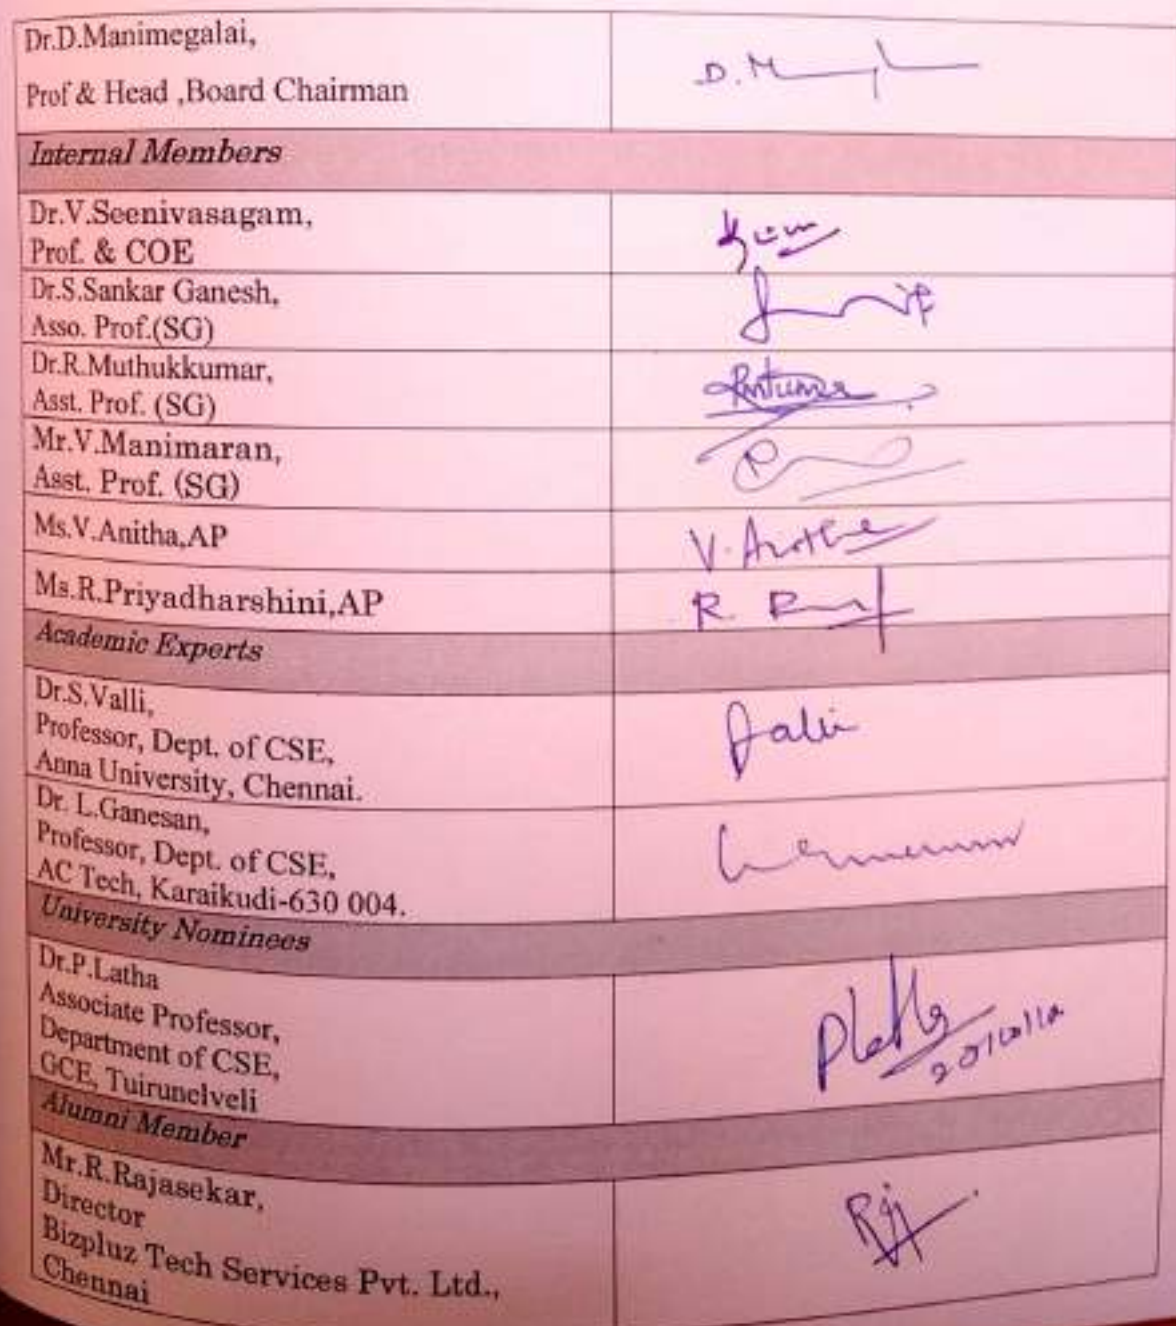 Dr.D.Manimegalai,
Prof & Head ,Board Chairman
D. M
Internal Members
Dr.V.Seenivasagam,
Prof. & COE
Dr.S.Sankar Ganesh,
Asso. Prof.(SG)
Dr.R.Muthukkumar,
Asst. Prof. (SG)
Mr.V.Manimaran,
Asst. Prof. (SG)
Ms.V.Anitha,AP
V. Anitha
Ms.R.Priyadharshini,AP
R.
Academic Experts
Dr.S.Valli,
Professor, Dept. of CSE,
Anna University, Chennai.
Dr. L.Ganesan,
Professor, Dept. of CSE,
AC Tech, Karaikudi-630 004.
University Nominees
Dr.P.Latha
Associate Professor,
Department of CSE,
GCE, Tuirunelveli
PLatha
Alumni Member
Mr.R.Rajasekar,
Director
Bizpluz Tech Services Pvt. Ltd.,
Chennai